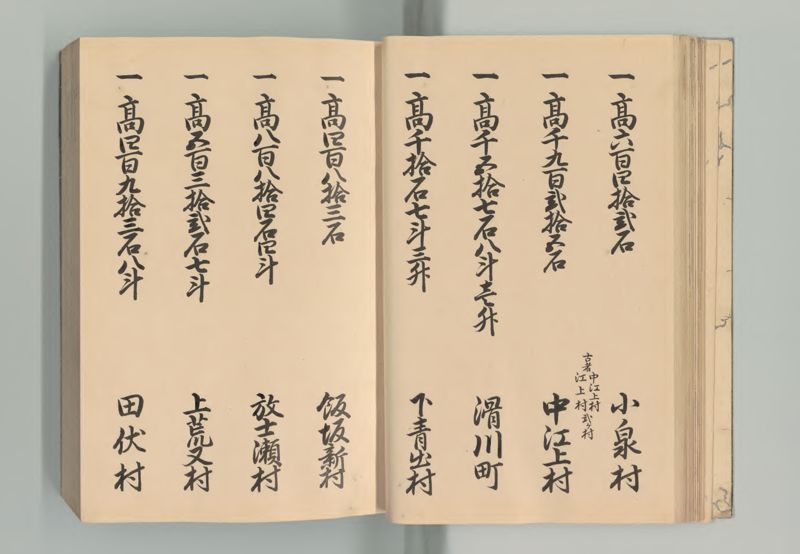 一 高六百四拾弐石 小泉村
一 高千九百弐拾五石 古者中江上村 江上村弐ヶ村 中江上村
一 高千五拾七石八斗壱升 滑川町
一 高千拾石七斗三升 下青出村
一 高四百八拾三石 飯坂新村
一 高八百八拾四石四斗 放士瀬村
一 高五百三拾弐石七斗 上荒又村
一 高四百九拾三石八斗 田伏村